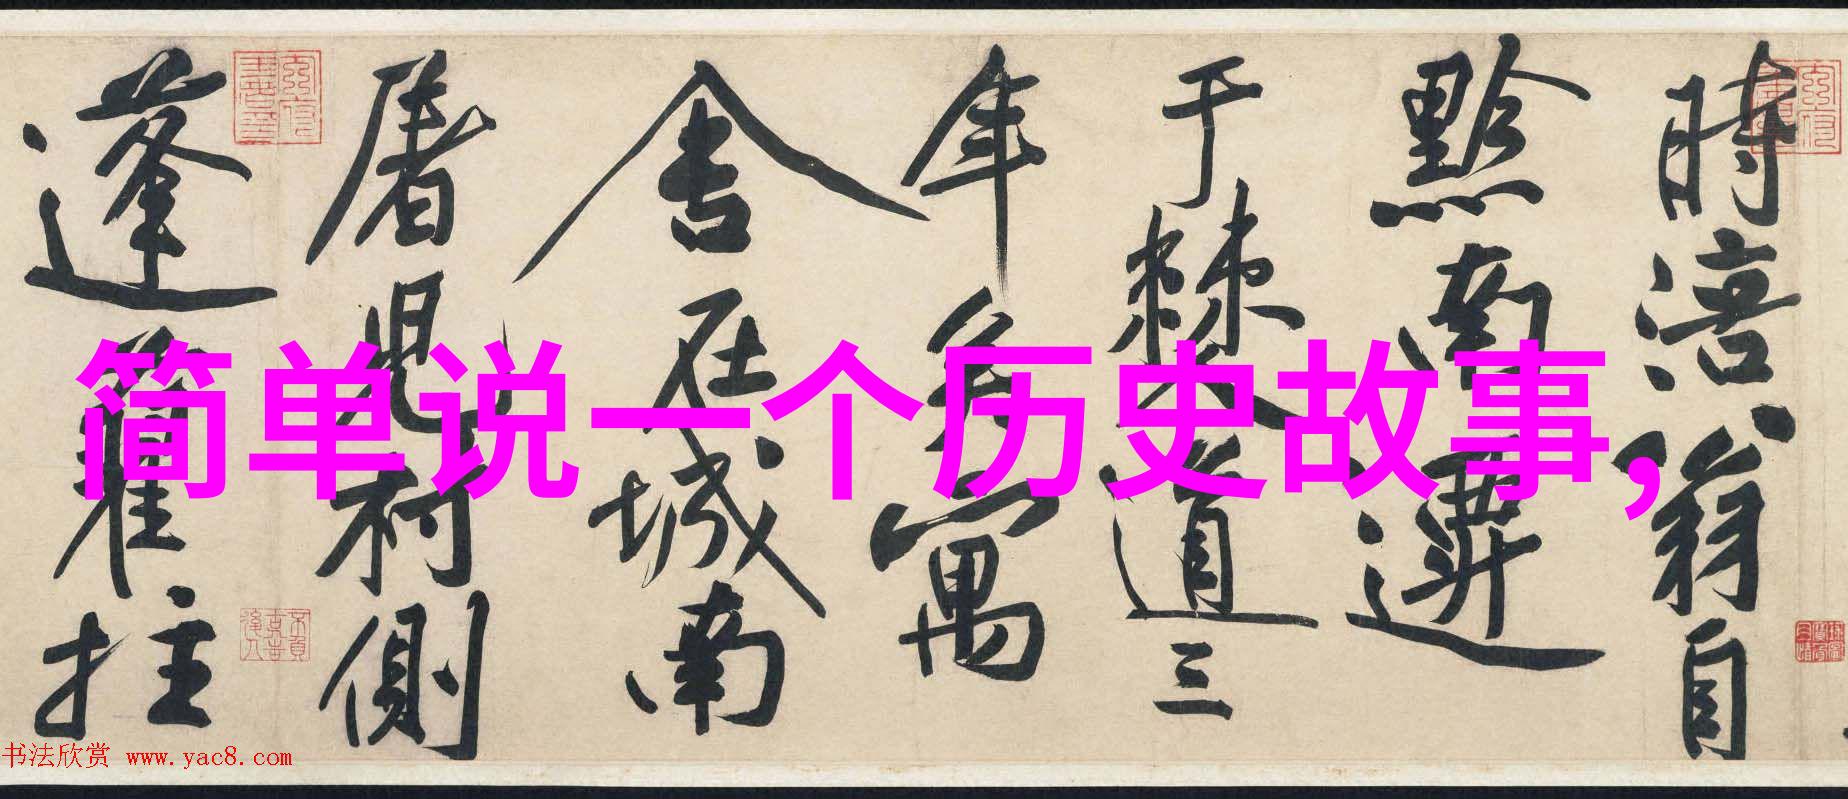 時涪翁自
黔南遷
于棘道三
年矣寓
舍在城南
屠児村側
蓬藋拄
简单说一个历史故事,
书法欣赏 www.yac8.com